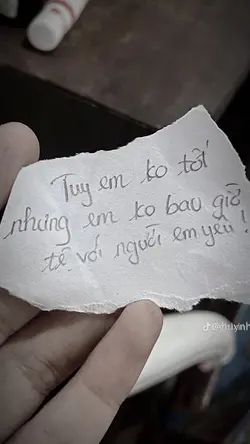 Tuy em ko tới
nhưng em ko bao giờ
tệ với người em yêu!